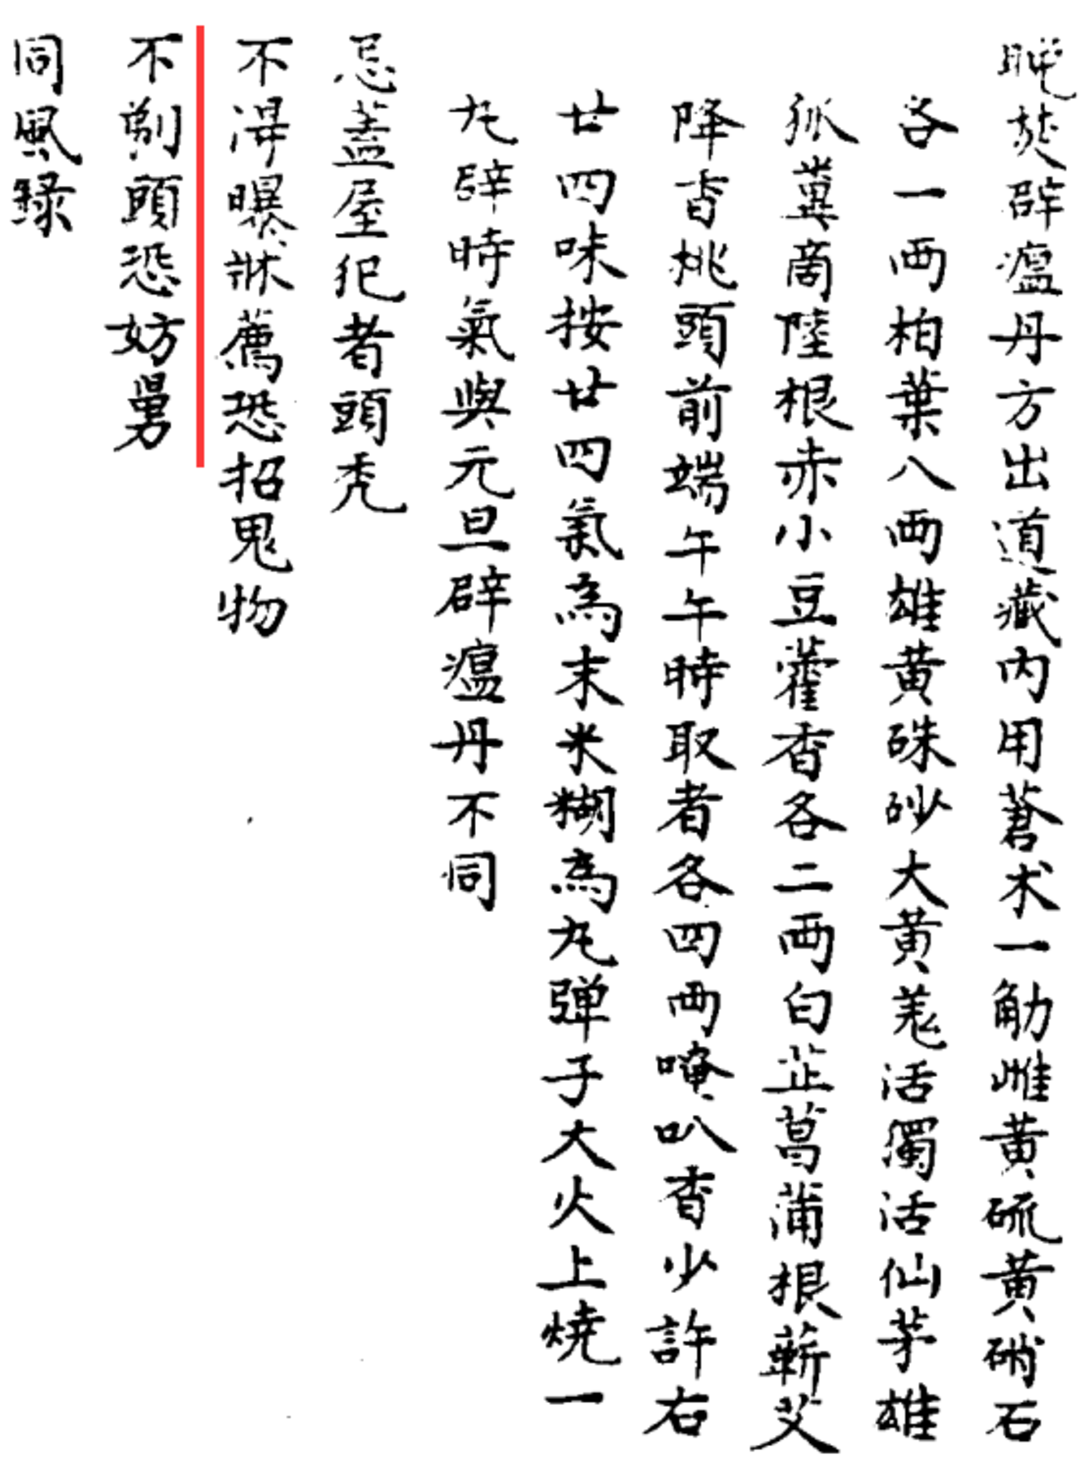 晚焚辟瘟丹方出道藏內用蒼术一觔雌黃硫黃硝石
各一两柏葉八两雄黃硃砂大黃羗活獨活仙茅雄
狐糞啇陸根赤小豆藿香各二两白芷菖蒲根蘄艾
降香桃頭前端午午時取者各四两唵叭香少許右
廿四味按廿四氣為末米糊為九弹子大火上燒一
九辟時氣與元旦辟瘟丹不同
忌蓋屋犯者頭禿
不淂曝牀薦恐招鬼物
不剃頭恐妨舅
同風録